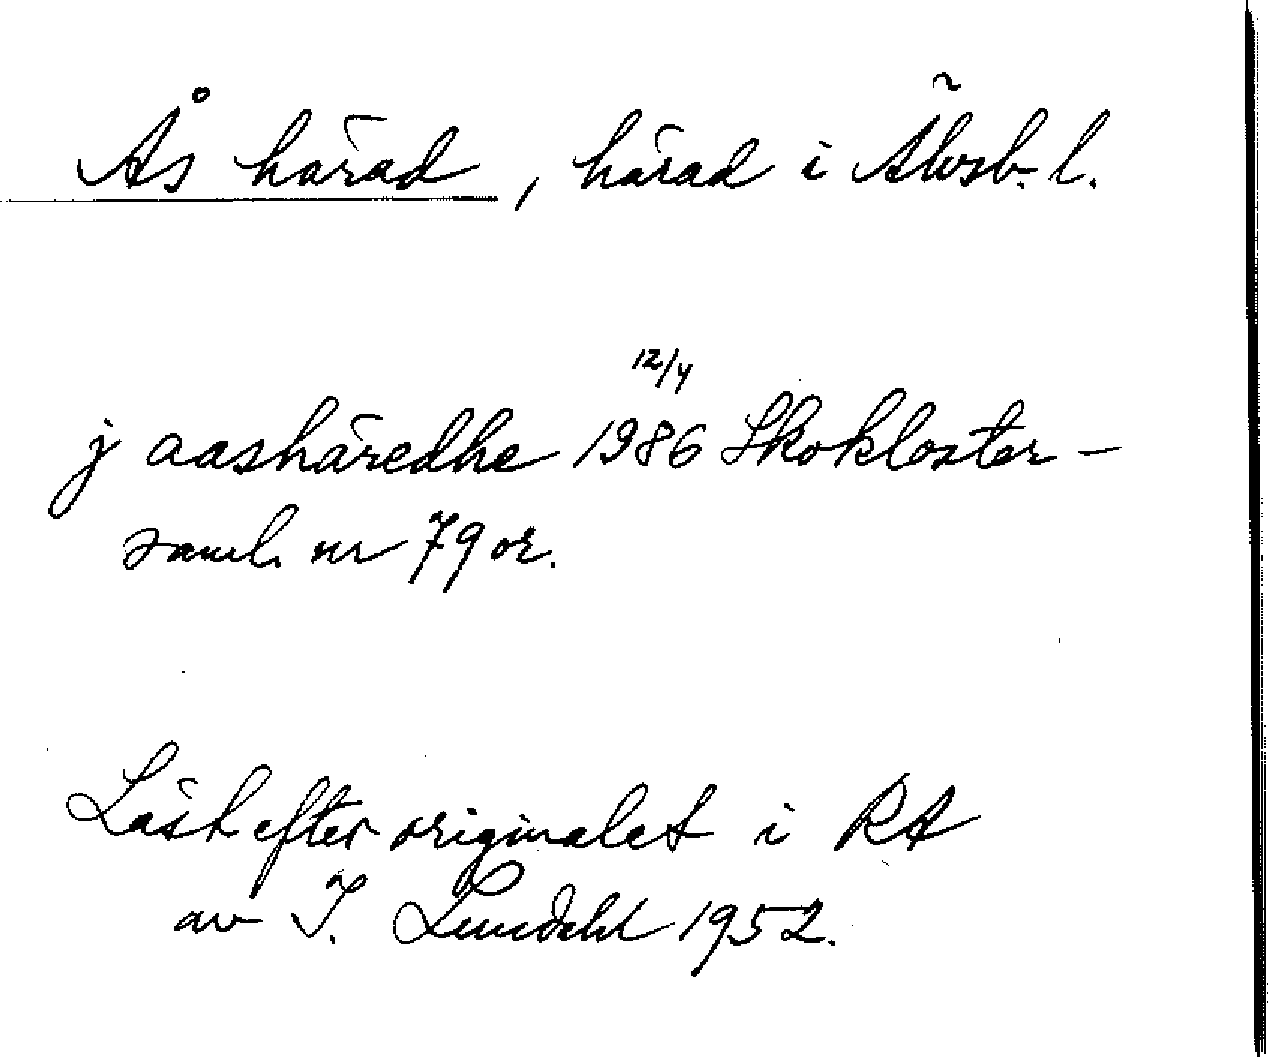 Ås härad, härad i Älvsb. l.
12/4
j aashäredhe 1986 Skokloster-
saml. nr 79 or.
Läst efter originalet i RA
av I. Lundahl 1952.